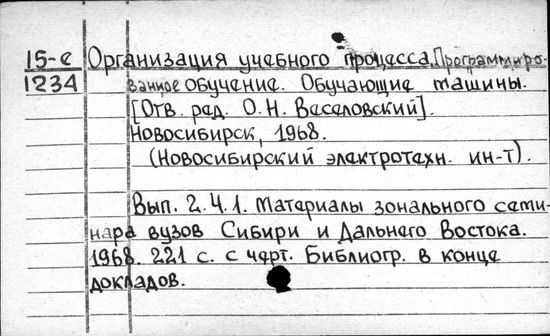 15-е Организация учебного процесса. Программиро-
1234 ванное обучение. Обучающие машины.
[Отв. ред. О.Н. Веселовский].
Новосибирск, 1968.
(Новосибирский электротехн. ин-т).
Вып. 2.Ч.1. Материалы зонального семи-
нара вузов Сибири и Дальнего Востока.
1968. 221 с. с черт. Библиогр. в конце
докладов.